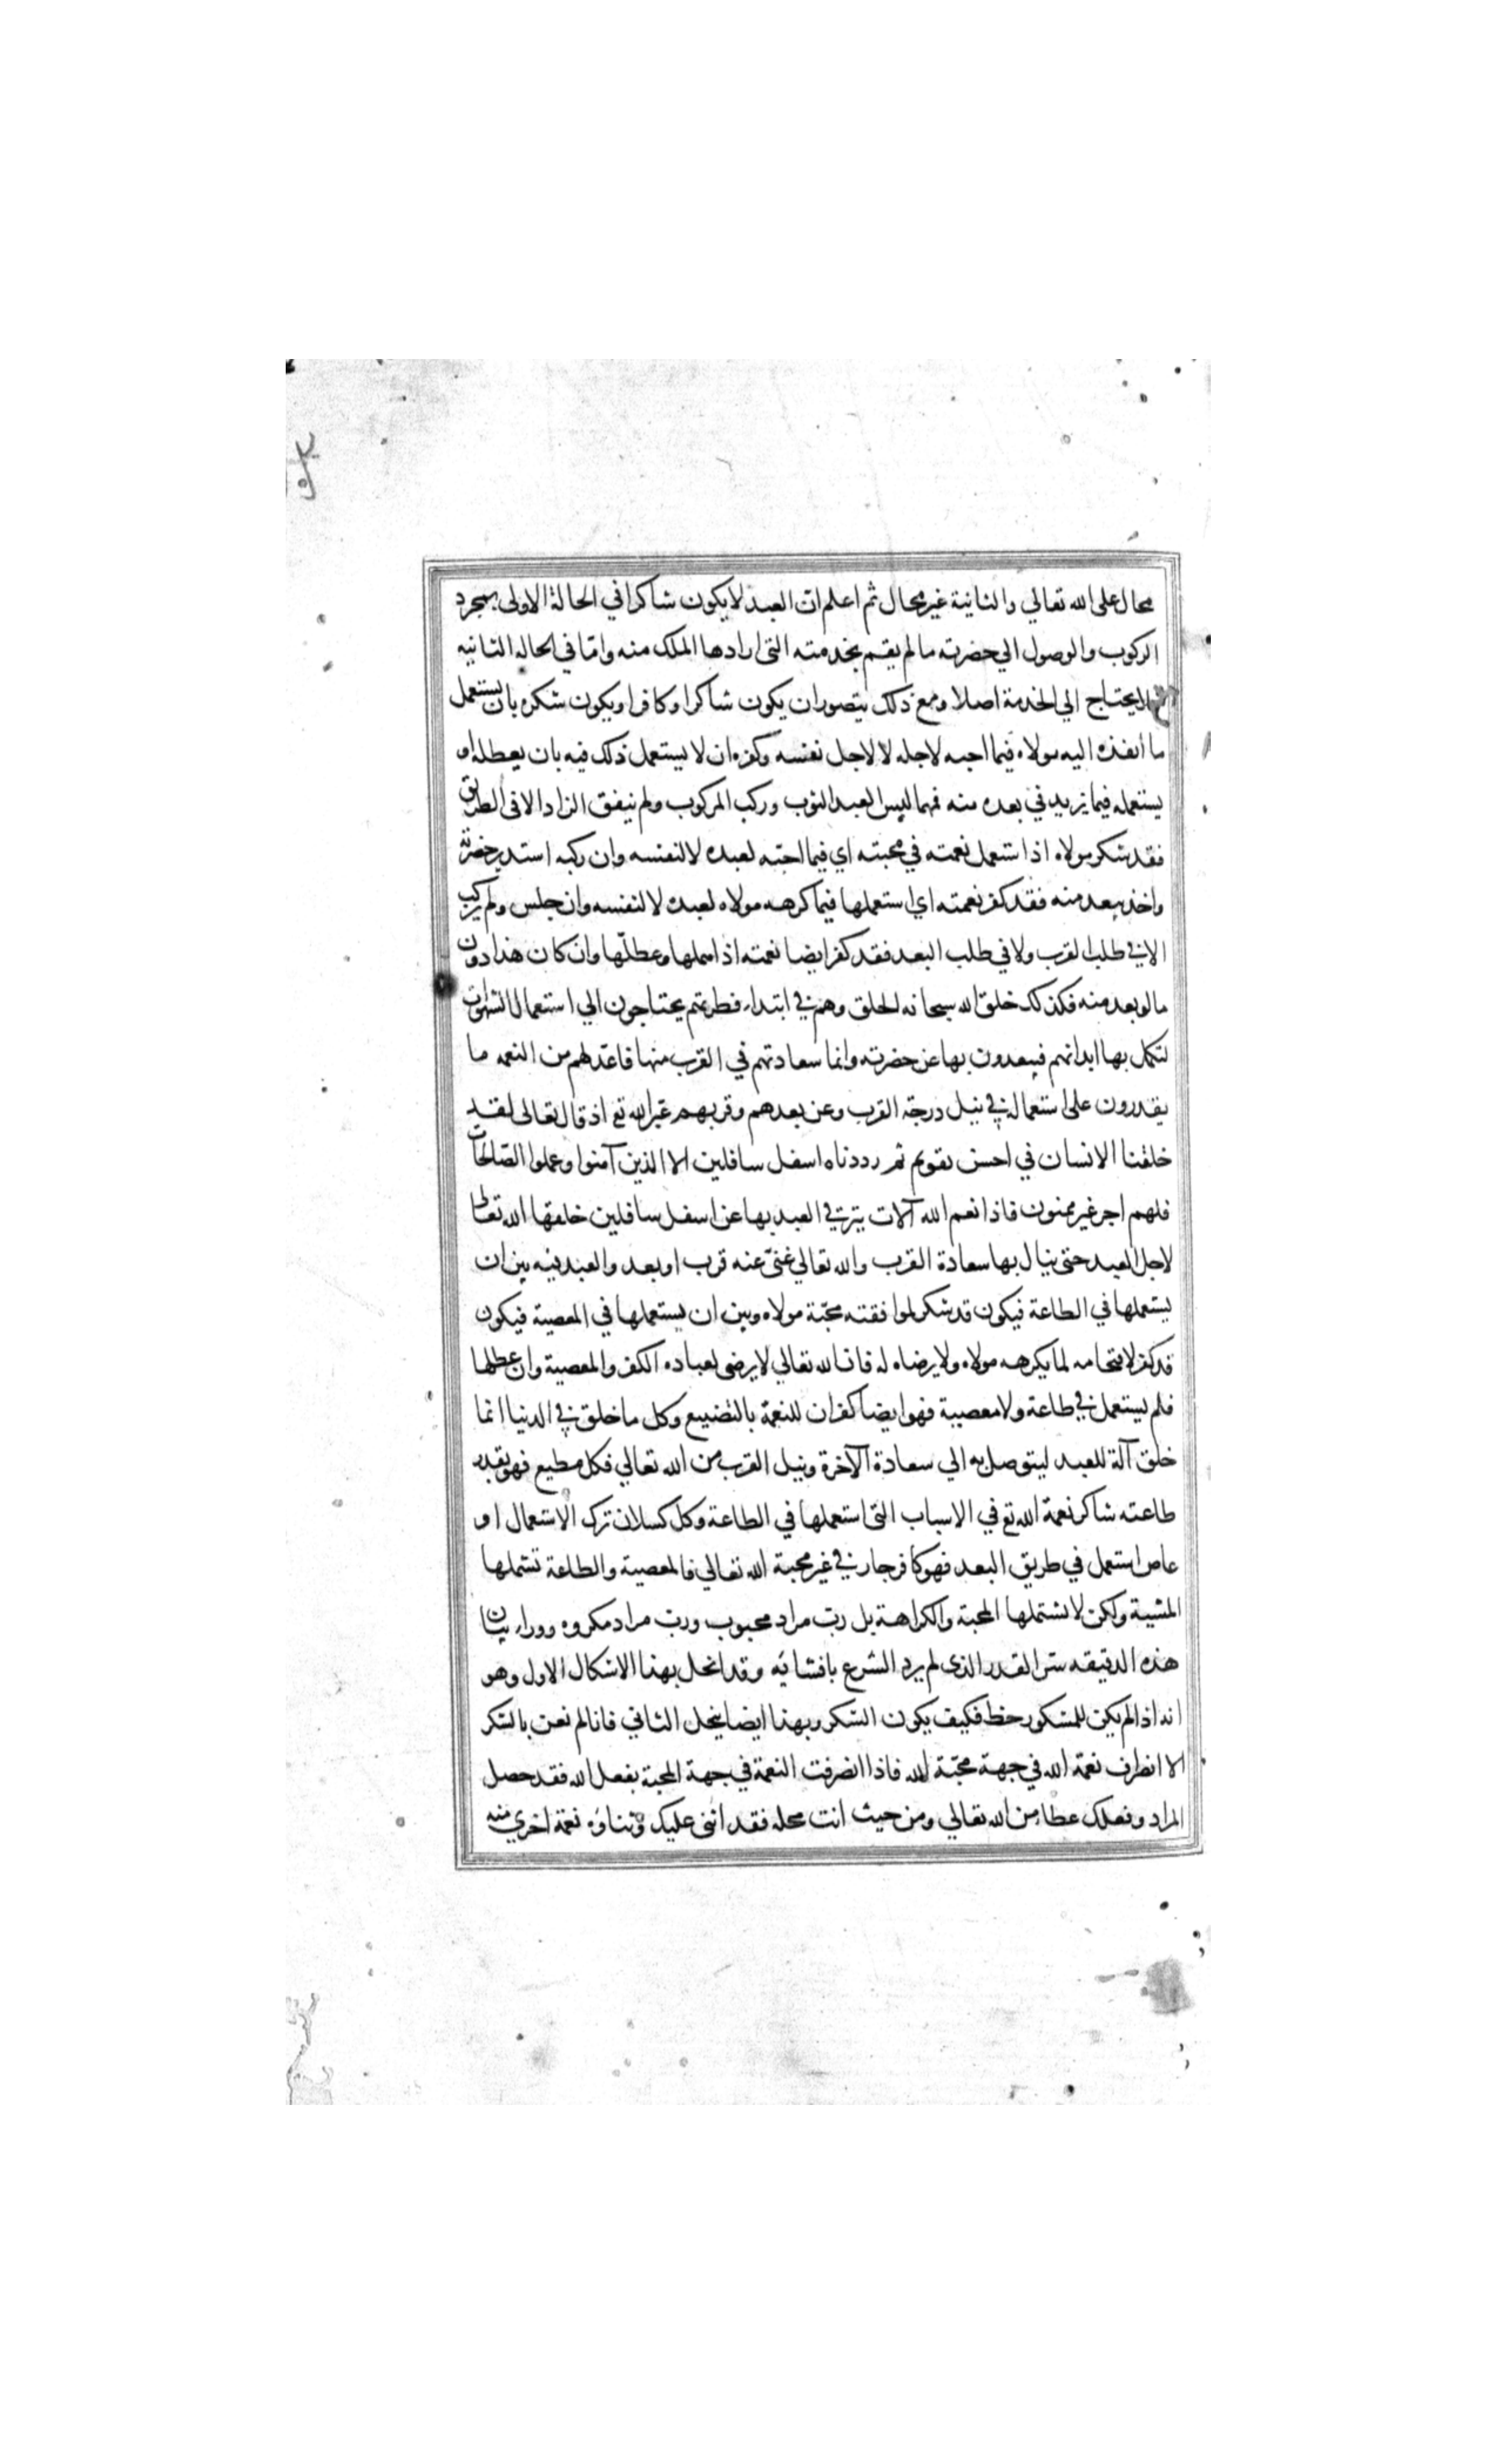 محال على الله تعالي والثانية غير محال ثم اعلم ان العبد لا يكون شاكرا في الحالة الاولى بمجرد
الركوب والوصول الي حضرته ما لم يقم بخدمته التى ارادها الملك منه وامّا في الحاله الثانيه
لا يحتاج الي الخدمة اصلا ومع ذلك يتصور ان يكون شاكرا وكافرا ويكون شكره بان يستعمل
ما أنفذه اليه مولاه فيما احبه لاجله لا لاجل نفسه وكفره ان لا يستعمل ذلك فيه بان يعطله او
يستعمله فيما يزيد في بعده منه فمهما لبس العبد الثوب وركب المركوب ولم ينفق الزاد الا في الطريق
فقد شكر مولاه اذا ستعمل نعمته في محبته اي فيما احبّه لعبده لا لنفسه وان ركبه استدبر حضرته
واخذ يبعد منه فقد كفر نعمته اي استعملها فيما كرهه مولاه لعبده لا لنفسه وان جلس ولم يركب
الا في طلب القرب ولا في طلب البعد فقد كفر ايضا نعمته اذ اهملها وعطلّها وان كان هذا دون
ما لو بعد منه فكذلك خلق الله سبحانه الخلق وهم في ابتداء فطرتهم يحتاجون الي استعمال الشهوات
لتكمل بها ابدانهم فيبعدون بها عن حضرته وانما سعادتهم في القرب منها فاعدّ لهم من النعمه ما
يقدرون على استعماله في نيل درجة القرب وعن بعدهم وقربهم عبّر الله تع اذ قال تعالى لقد
خلقنا الانسان في احسن تقويم ثم رددناه اسفل سافلين الا الذين آمنوا وعملوا الصّالحات
فلهم اجر غير ممنون فاذا نعم الله آلات يترقي العبد بها عن اسفل سافلين خلقها الله تعالى
لاجل العبد حتى ينال بها سعادة القرب والله تعالي غنىّ عنه قرب او بعد والعبد فيه بين ان
يستعملها في الطاعة فيكون قد شكر لموافقته محبّة مولاه وبين ان يستعملها في المعصية فيكون
قد كفر لاقتحامه لما يكرهه مولاه ولا يرضاه له فان الله تعالي لا يرضى لعباده الكفر والمعصية وان عطلها
فلم يستعمل في طاعة ولا معصية فهو ايضا كفران للنعمة بالتضييع وكل ما خلق في الدنيا انما
خلق آلة للعبد ليتوصل به الي سعادة الآخرة ونيل القرب من الله تعالي فكل مطيع فهو بقدر
طاعته شاكر نعمة الله تع في الاسباب التى استعملها في الطاعة وكل كسلان ترك الاستعمال او
عاص استعمل في طريق البعد فهو كافر جار في غير محبة الله تعالي فالمعصية والطاعة تشملها
المشية ولكن لا تشتملها المحبة والكراهة بل ربّ مراد محبوب وربّ مراد مكروه ووراء بيان
هذه الدقيقه سّر القدر الذى لم يرد الشرع بافشائه وقد انحل بهذا الاشكال الاول وهو
انه اذا لم يكن للمشكور حظ فكيف يكون الشكر وبهذا ايضا ينحل الثاني فانا لم نعن بالشكر
الا انطراف نعمة الله في جهة محبّة الله فاذا انصرفت النعمة في جهة المحبة بفعل الله فقد حصل
المراد وفعلك عطاء من الله تعالي ومن حيث انت محله فقد اثنى عليك وثناؤه نعمة اخري منه